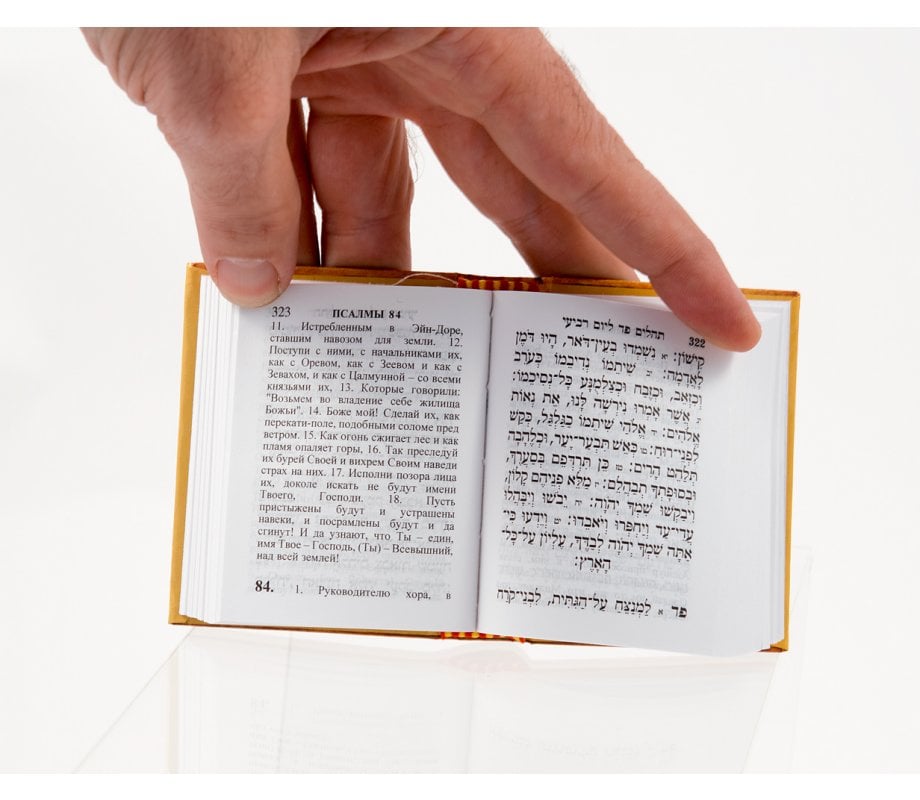 323 ПСАЛМЫ 84
11. Истребленным в Эйн-Доре,
ставшим навозом для земли. 12.
Поступи с ними, с начальниками их,
как с Оревом, как с Зеевом и как с
Зевахом, и как с Цалмунной – со всеми
князьями их, 13. Которые говорили:
"Возьмем во владение себе жилища
Божьи". 14. Боже мой! Сделай их, как
перекати-поле, подобными соломе пред
ветром. 15. Как огонь сжигает лес и как
пламя опаляет горы, 16. Так преследуй
их бурей Своей и вихрем Своим наведи
страх на них. 17. Исполни позора лица
их, доколе искать не будут имени
Твоего, Господи. 18. Пусть
пристыжены будут и устрашены
навеки, и посрамлены будут и да
сгинут! И да узнают, что Ты – един,
имя Твое – Господь, (Ты) – Всевышний,
над всей землей!
84. 1. Руководителю хора, в
322 תהלים פד ליום רביעי
קִישׁוֹן: יא נִשְׁמְדוּ בְעֵין־דֹּאר, הָיוּ דֹּמֶן
לָאֲדָמָה: יב שִׁיתֵמוֹ נְדִיבֵמוֹ כְּעֹרֵב
וְכִזְאֵב, וּכְזֶבַח וּכְצַלְמֻנָּע כָּל־נְסִיכֵמוֹ:
יג אֲשֶׁר אָמְרוּ נִירְשָׁה לָּנוּ, אֵת נְאוֹת
אֱלֹהִים: יד אֱלֹהַי שִׁיתֵמוֹ כַגַּלְגַּל, כְּקַשׁ
לִפְנֵי־רוּחַ: טו כְּאֵשׁ תִּבְעַר־יָעַר, וּכְלֶהָבָה
תְּלַהֵט הָרִים: טז כֵּן תִּרְדְּפֵם בְּסַעֲרֶךָ,
וּבְסוּפָתְךָ תְבַהֲלֵם: יז מַלֵּא פְנֵיהֶם קָלוֹן,
וִיבַקְשׁוּ שִׁמְךָ יְהוָה: יח יֵבֹשׁוּ וְיִבָּהֲלוּ
עֲדֵי־עַד וְיַחְפְּרוּ וְיֹאבֵדוּ: יט וְיֵדְעוּ כִּי
אַתָּה שִׁמְךָ יְהוָה לְבַדֶּךָ, עֶלְיוֹן עַל־כָּל־
הָאָרֶץ:
פד א לַמְנַצֵּחַ עַל־הַגִּתִּית, לִבְנֵי־קֹרַח